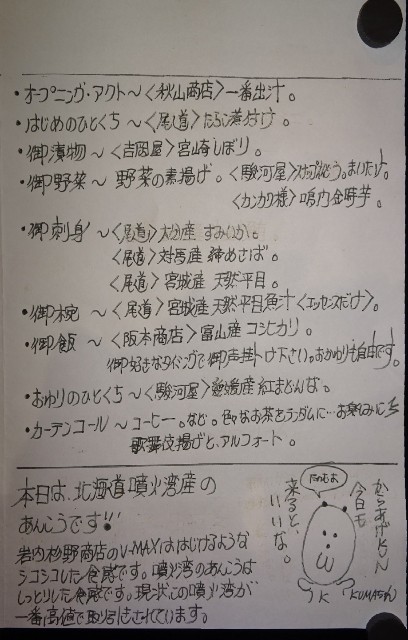 ・オープニング・アクト～〈秋山商店〉一番出汁。
・はじめのひとくち～〈尾道〉たらこ煮付け。
・御漬物～〈吉岡屋〉宮崎しぼり。
・御野菜～野菜の素揚げ。〈駿河屋〉
〈カンカク様〉鳴門金時芋。
・御刺身～〈尾道〉大分産 すみいか。
〈尾道〉対馬産 締めさば。
〈尾道〉宮城産 天然平目。
・御椀～〈尾道〉宮城産 天然平目魚汁〈エッセンスだけ〉。
・御飯～〈阪本商店〉富山産 コシヒカリ。
御好きなタイミングで御声掛け下さい。おかわりも自由です。
・おわりのひとくち～〈駿河屋〉愛媛産 紅まどんな。
・カーテンコール～コーヒー。など。色々なお茶をランダムに…お楽しみに
歌舞伎揚げと、アルフォート。
本日は、北海道噴火湾産の
あんこうです!!
岩内杉野商店のV-MAXははじけるような
シコシコした食感です。噴火湾のあんこうは
しっとりした食感です。現状この噴火湾が
一番高値で取り引きされています。
からあげクン
今日も
来ると、
いいな。
たのむお
K
KUMASAN